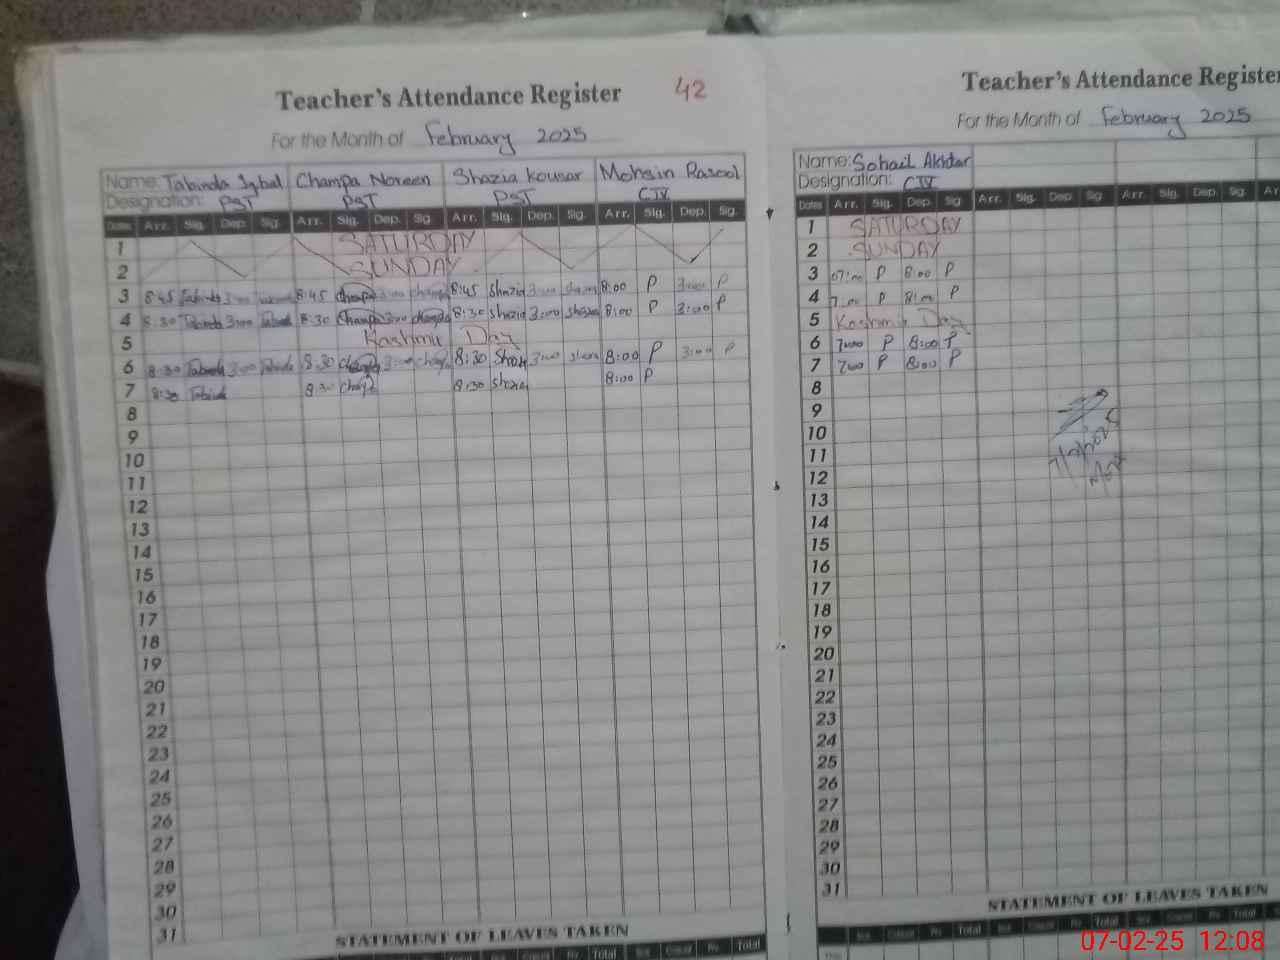 Teacher's Attendance Register 42
For the Month of February 2025
Name: Tabinda Iqbal Champa Noreen Shazia Kousar Mohsin Rasool
Designation: PST PST PST CIV
Dates Arr. Sig. Dep. Sig. Arr. Sig. Dep. Sig. Arr. Sig. Dep. Sig. Arr. Sig. Dep. Sig.
1 SATURDAY
2 SUNDAY
3 8:45 Tabinda 3:00 Tabinda 8:45 Champa 3:00 Champa 8:45 Shazia 3:00 Shazia 8:00 P 3:00 P
4 8:30 Tabinda 3:00 Tabinda 8:30 Champa 3:00 Champa 8:30 Shazia 3:00 Shazia 8:00 P 3:00 P
5 Kashmir Day
6 8:30 Tabinda 3:00 Tabinda 8:30 Champa 3:00 Champa 8:30 Shazia 3:00 Shazia 8:00 P 3:00 P
7 8:30 Tabinda 8:30 Champa 8:30 Shazia 8:00 P
8
9
10
11
12
13
14
15
16
17
18
19
20
21
22
23
24
25
26
27
28
29
30
31
STATEMENT OF LEAVES TAKEN
Total Total Total Total
Teacher's Attendance Register
For the Month of February 2025
Name: Sohail Akhtar
Designation: CIV
Dates Arr. Sig. Dep. Sig. Arr. Sig. Dep. Sig. Arr. Sig. Dep. Sig.
1 SATURDAY
2 SUNDAY
3 07:00 P 8:00 P
4 7:00 P 8:00 P
5 Kashmir Day
6 7:00 P 8:00 P
7 7:00 P 8:00 P
8
9
10
11
12
13
14
15
16
17
18
19
20
21
22
23
24
25
26
27
28
29
30
31
STATEMENT OF LEAVES TAKEN
Total Total
07-02-25 12:08